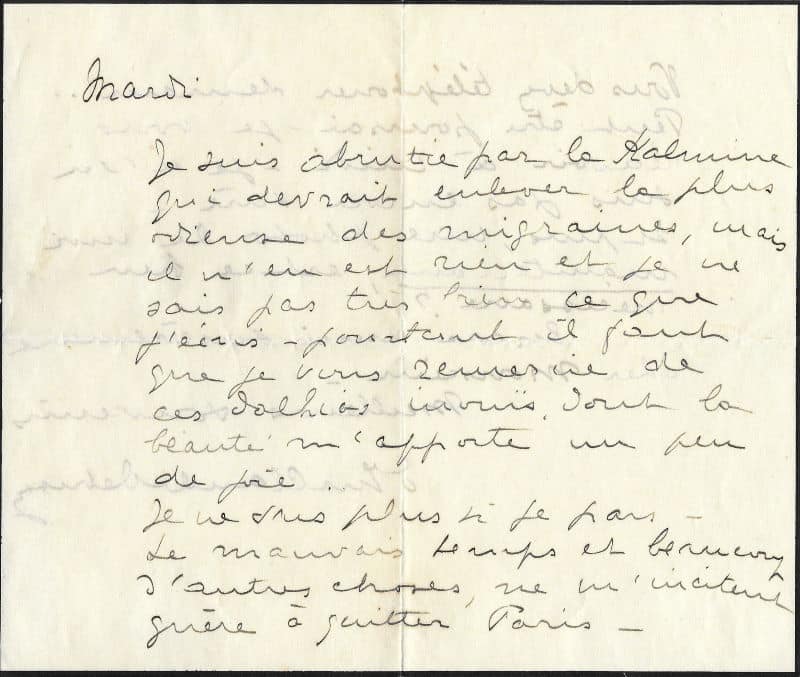 Mardi
Je suis abrutie par la Kalmine
qui devrait enlever la plus
odieuse des migraines, mais
il n'en est rien et je ne
sais pas très bien ce que
j'écris - pourtant il faut
que je vous remercie de
ces dalhias inouïs, dont la
beauté m'apporte un peu
de joie..
Je ne sais plus si je pars -
Le mauvais temps et beaucoup
d'autres choses, ne m'incitent
guère à quitter Paris -